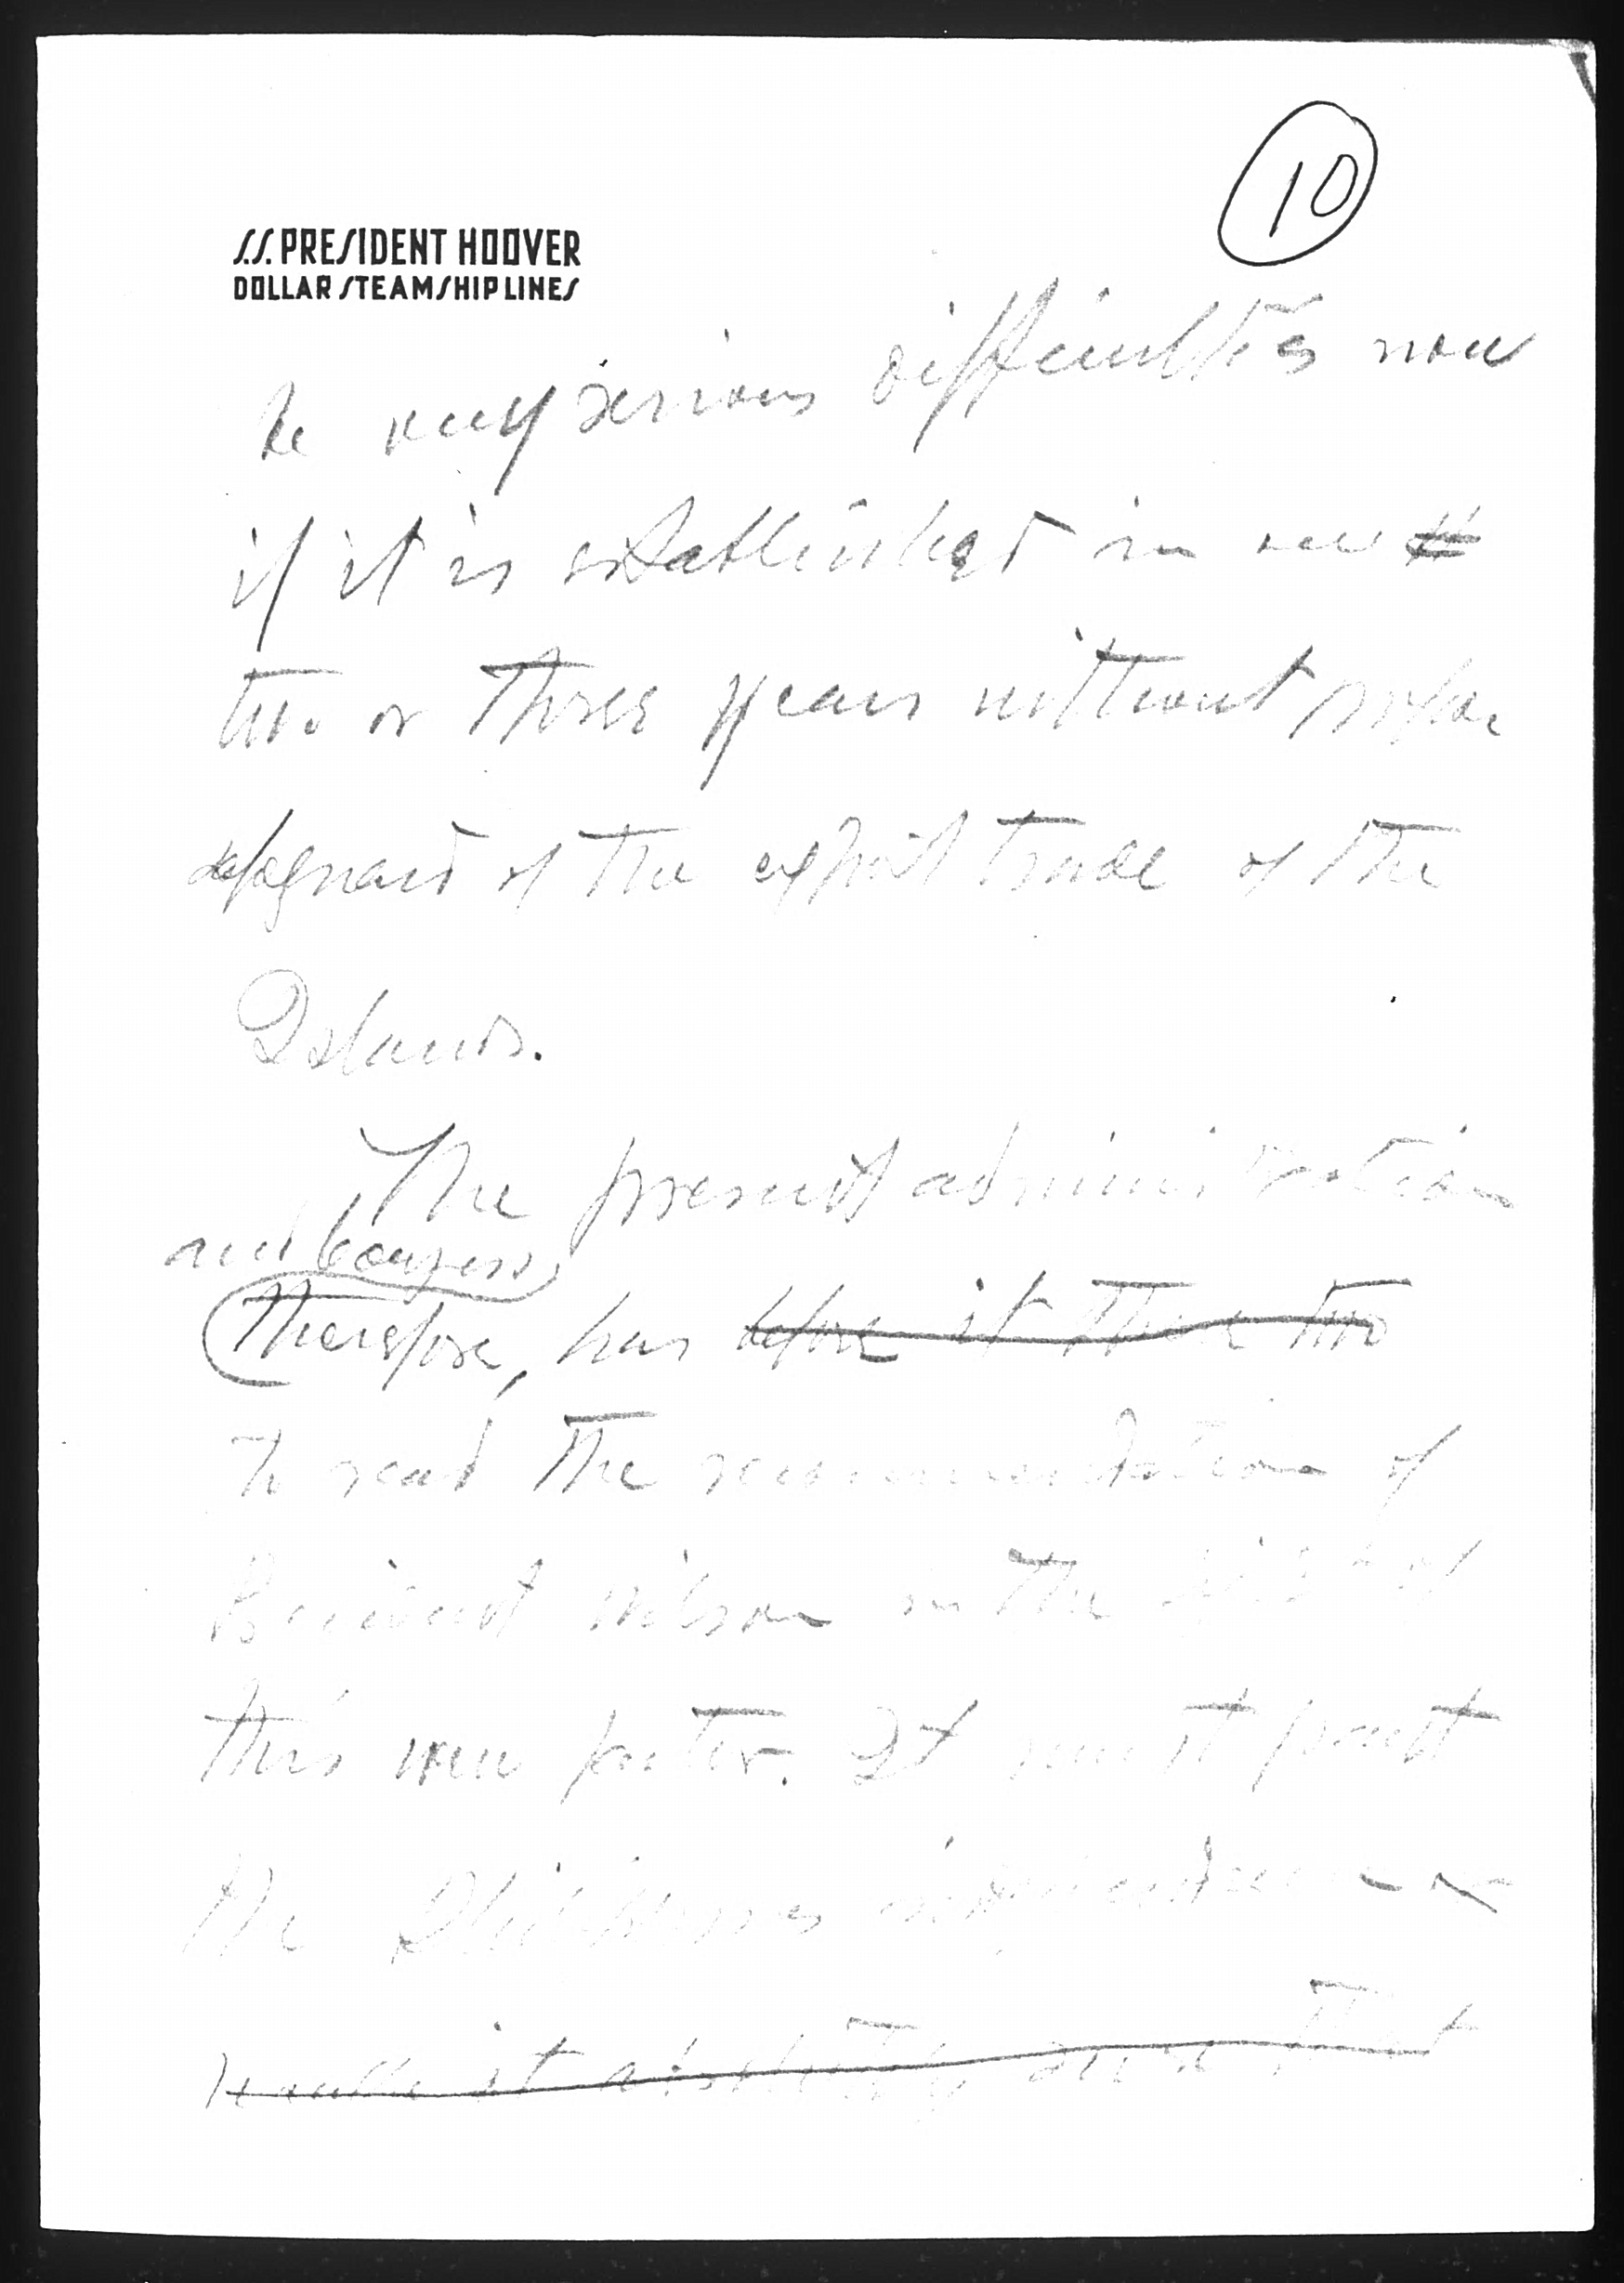 10
S.S. PRESIDENT HOOVER
DOLLAR STEAMSHIP LINES
be very serious difficulties now
if it is established in
two or three years without
safeguard of the export trade of the
Islands.
The present administration
and Congress,
Therefore, has before it these two
to read the recommendation of
President Wilson in the light of
this new factor. It must grant
the Philippines independence
it absolutely that